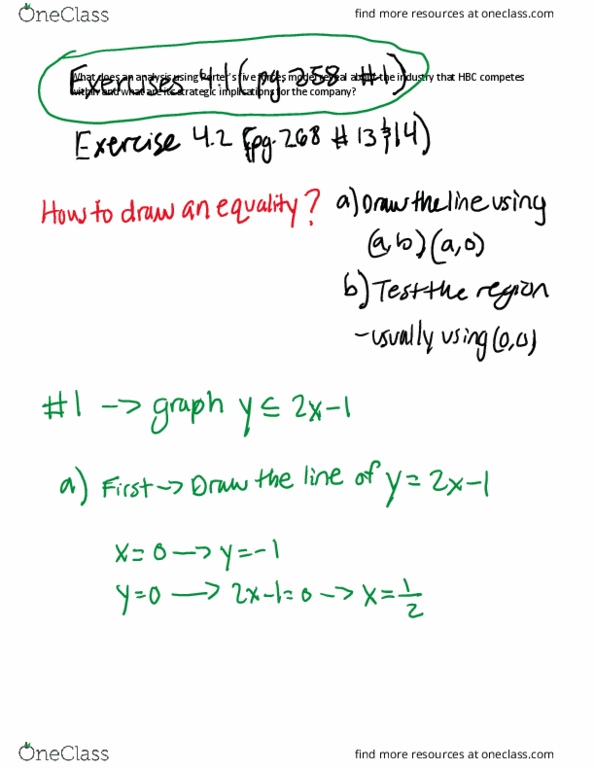 OneClass
find more resources at oneclass.com
Exercises 4.1 (pg. 258 #1)
What does an analysis using Porter's five forces model reveal about the industry that HBC competes
within and what are its strategic implications for the company?
Exercise 4.2 (pg. 268 # 13 & 14)
How to draw an equality?
a) Draw the line using
(a,b) (a,0)
b) Test the region
- usually using (0,0)
#1 -> graph y ≤ 2x-1
a) First -> Draw the line of y = 2x-1
x=0 -> y=-1
y=0 -> 2x-1=0 -> x=1/2
OneClass
find more resources at oneclass.com